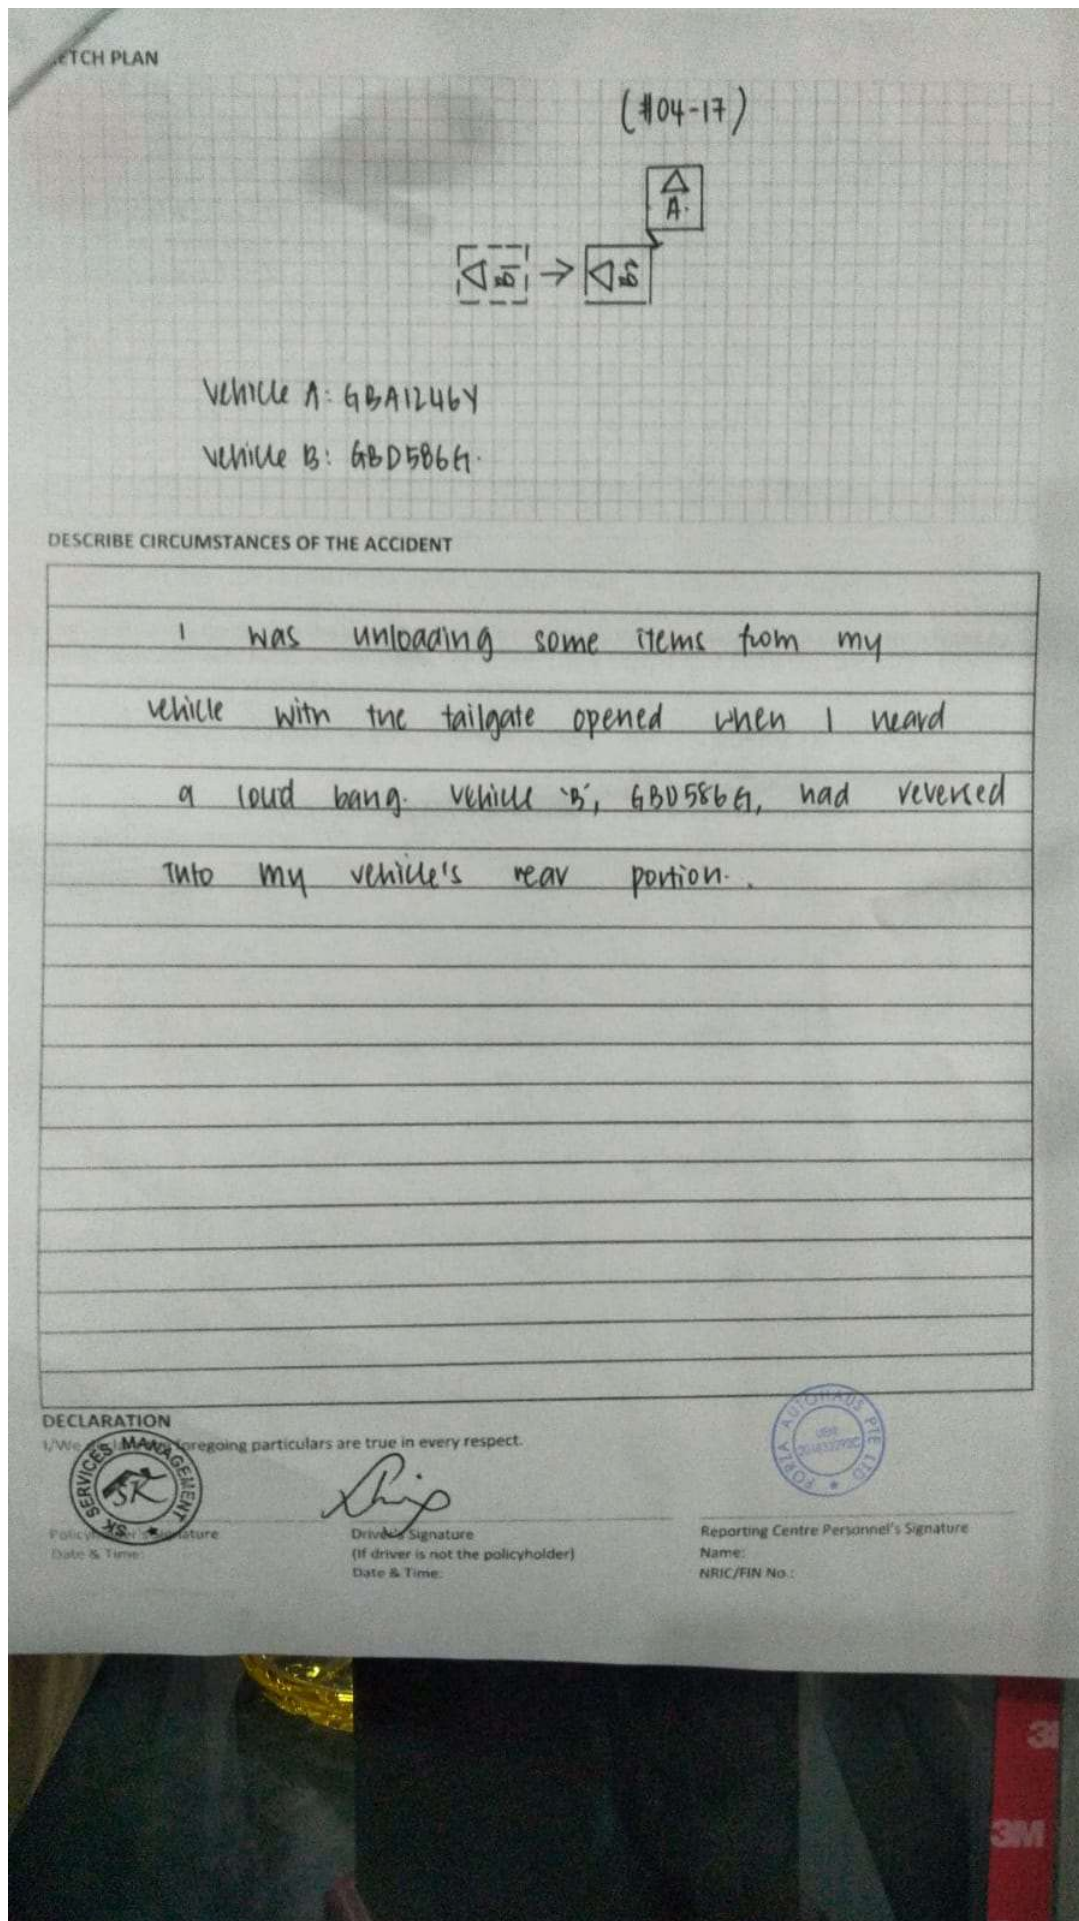 ETCH PLAN
(#04-17)
A.
B1
B2
Vehicle A: GBA1246Y
Vehicle B: GBD586G.
DESCRIBE CIRCUMSTANCES OF THE ACCIDENT
I was unloading some items from my
vehicle with the tailgate opened when I heard
a loud bang. Vehicle 'B', GBD586G, had reversed
into my vehicle's rear portion..
DECLARATION
I/We foregoing particulars are true in every respect.
SK SERVICES MANAGEMENT
SK
FORZA AUTOHAUS PTE LTD
UEN
Policyholder's Signature
Date & Time:
Driver's Signature
(If driver is not the policyholder)
Date & Time:
Reporting Centre Personnel's Signature
Name:
NRIC/FIN No.:
3M
3M